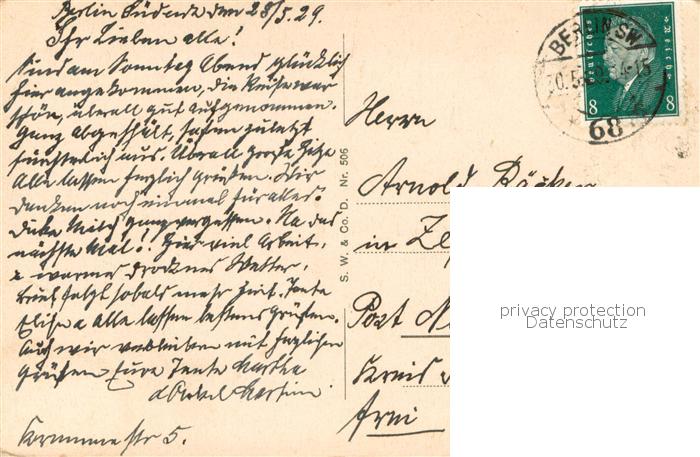 Berlin Südende den 28/5.29.
Ihr Lieben alle!
Sind am Sonntag Abend glücklich
hier angekommen, die Reise war
schön, überall gut aufgenommen.
Ganz abgehällt, sahen zuletzt
fürchterlich aus. Überall große Hitze
Alle lassen herzlich grüßen. Wir
danken noch einmal für alles.
Dicke Milch ganz vergessen. Na das
nächste Mal! Hier viel Arbeit,
warmes trocknes Wetter.
Brief folgt sobald mehr Zeit. Tante
Elise u Alle lassen bestens grüßen,
Auch wir verbleiben mit herzlichen
Grüßen Eure Tante Martha
Onkel
Krumme str 5.
S. W. & Co. D. Nr. 506
BERLIN SW
68
Deutsches Reich
8 8
Herrn
Arnold
in
Post
Kreis
privacy protection
Datenschutz